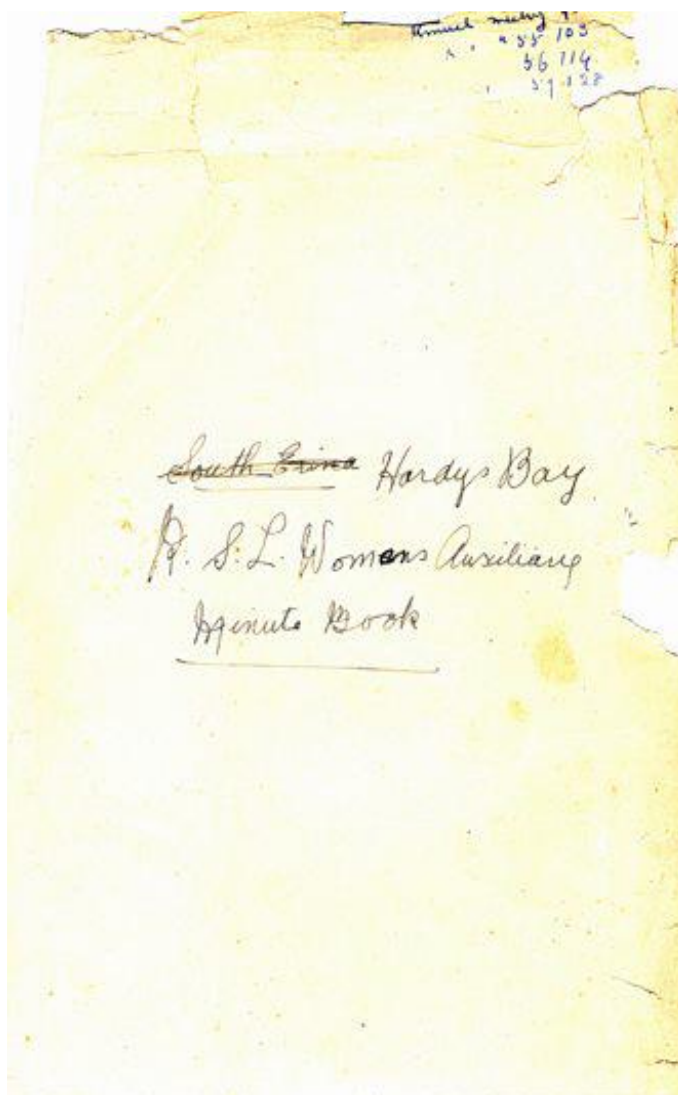 Annual meeting
" " " 55 103
56 114
57 128
South Erina Hardys Bay
R. S. L. Womens Auxiliary
Minute Book